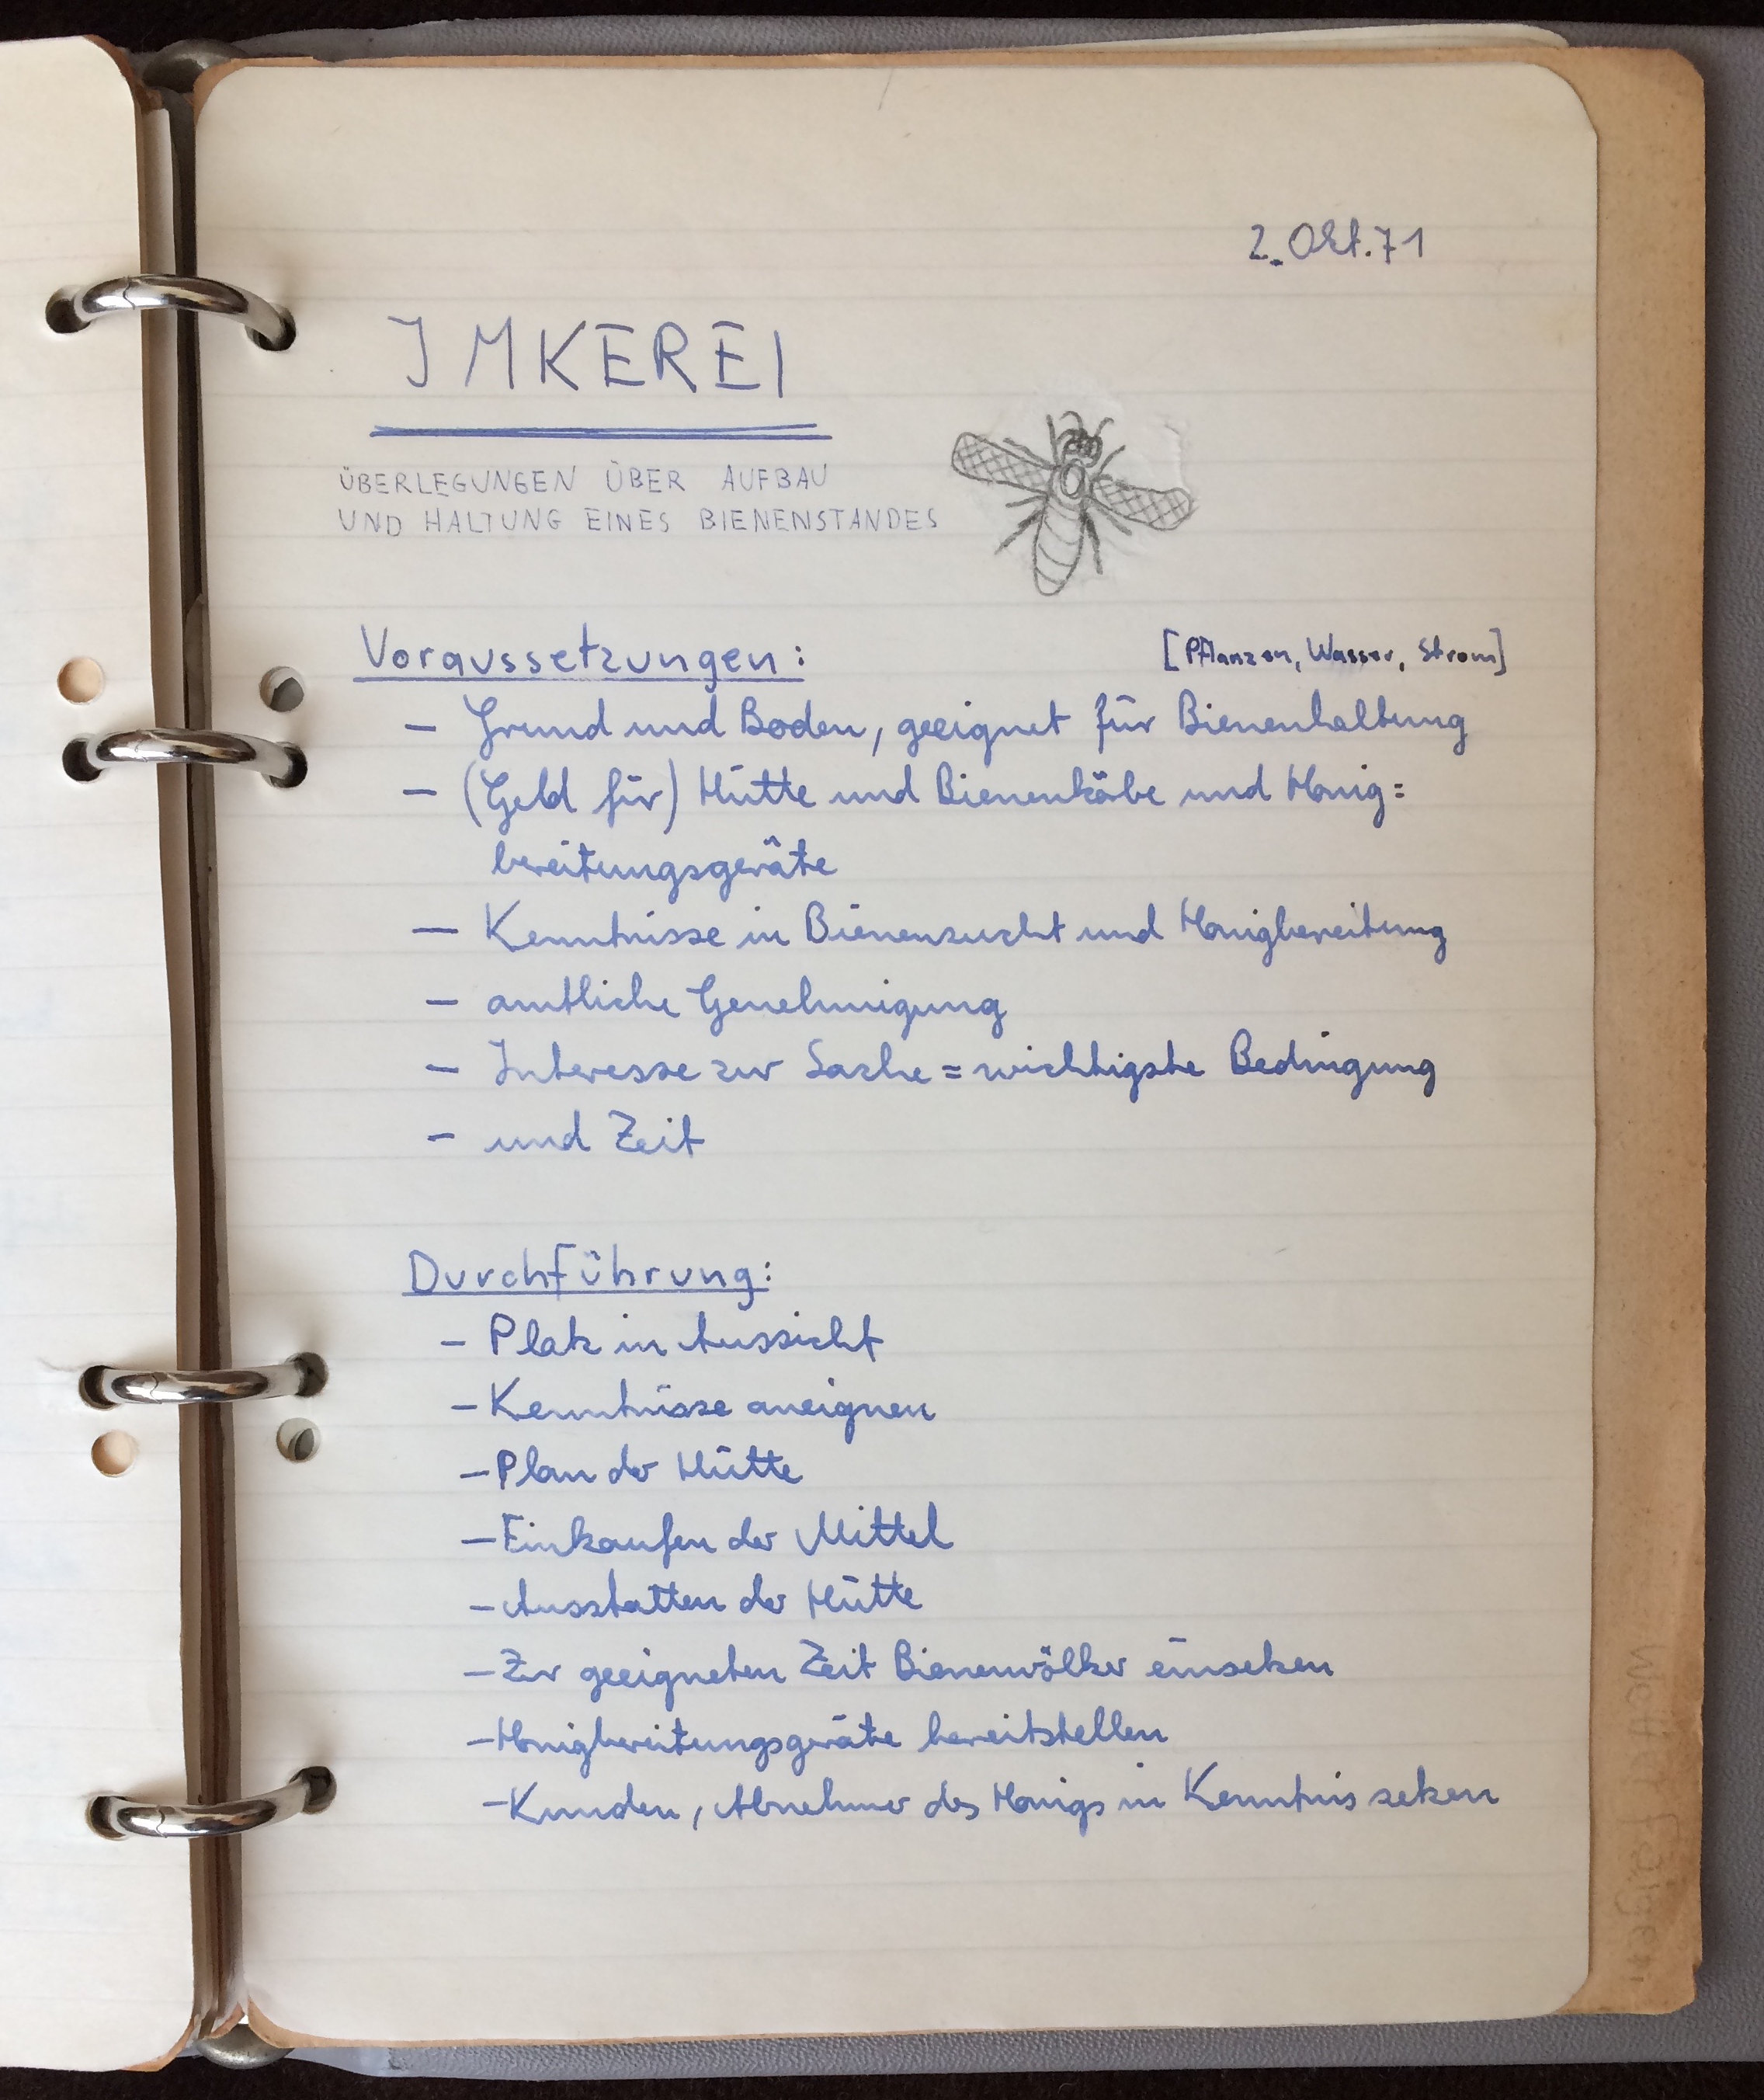 2. Okt. 71
IMKEREI
ÜBERLEGUNGEN ÜBER AUFBAU
UND HALTUNG EINES BIENENSTANDES
Voraussetzungen:
[Pflanzen, Wasser, Strom]
– Grund und Boden, geeignet für Bienenhaltung
– (Geld für) Hütte und Bienenkäbe und Honig=
bereitungsgeräte
– Kenntnisse in Bienenzucht und Honigbereitung
– amtliche Genehmigung
– Interesse zur Sache = wichtigste Bedingung
– und Zeit
Durchführung:
– Platz in Aussicht
– Kenntnisse aneignen
– Plan der Hütte
– Einkaufen der Mittel
– Ausstatten der Hütte
– Zur geeigneten Zeit Bienenvölker einsetzen
– Honigbereitungsgeräte bereitstellen
– Kunden, Abnehmer des Honigs in Kenntnis setzen